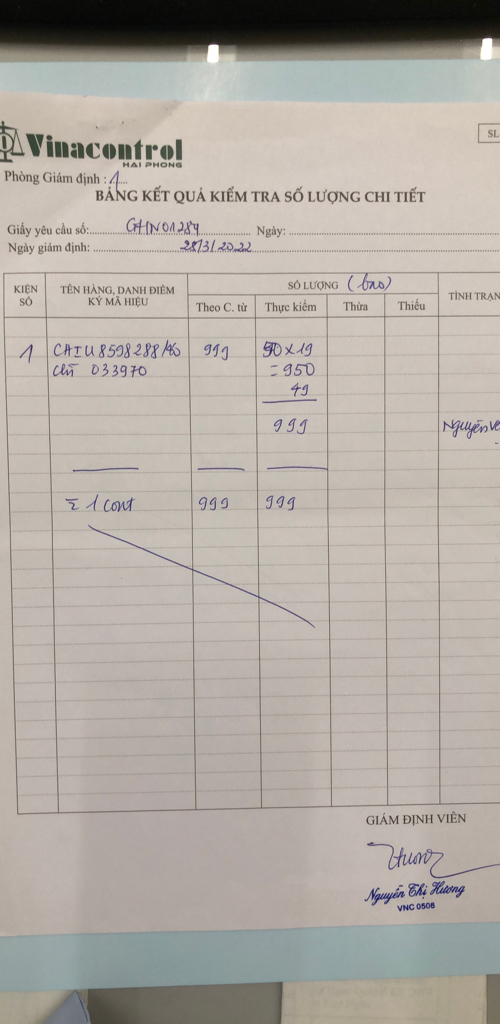 Vinacontrol
HAI PHONG
SL
Phòng Giám định : 1
BẢNG KẾT QUẢ KIỂM TRA SỐ LƯỢNG CHI TIẾT
Giấy yêu cầu số: GHN01284 Ngày:
Ngày giám định: 28/3/2022
KIỆN SỐ
TÊN HÀNG, DANH ĐIỂM KÝ MÃ HIỆU
SỐ LƯỢNG (bao)
TÌNH TRẠN
Theo C. từ Thực kiểm Thừa Thiếu
1 CAIU8598288/40 999 50 x 19
chì 033970 = 950
49
999 Nguyên vẹ
Σ 1 cont 999 999
GIÁM ĐỊNH VIÊN
Nguyễn Thị Hương
VNC 0506